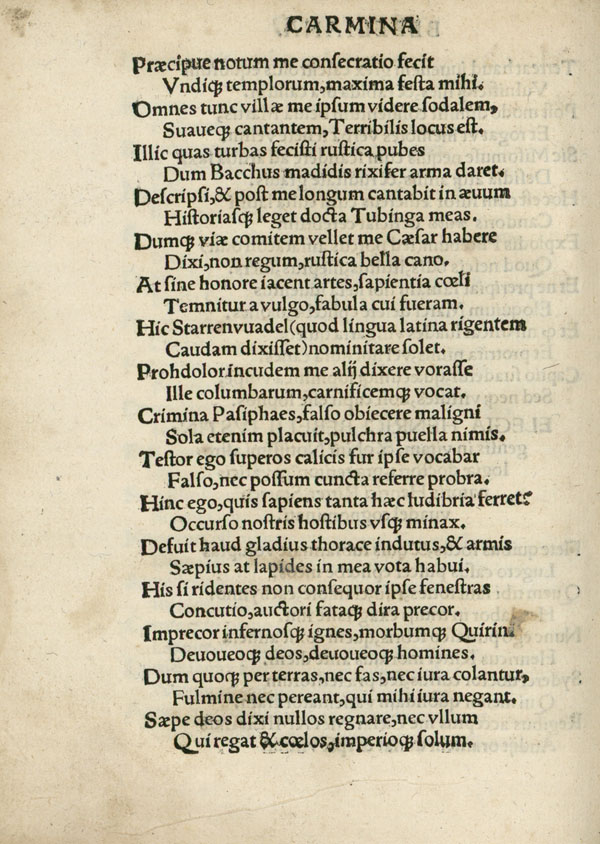 CARMINA
Præcipue notum me consecratio fecit
Vndiqꝫ templorum,maxima festa mihi.
Omnes tunc villæ me ipsum videre sodalem,
Suaueqꝫ cantantem,Terribilis locus est.
Illic quas turbas fecisti rustica pubes
Dum Bacchus madidis rixifer arma daret.
Descripsi,& post me longum cantabit in æuum
Historiasqꝫ leget docta Tubinga meas.
Dumqꝫ viæ comitem vellet me Cæsar habere
Dixi,non regum,rustica bella cano.
At sine honore iacent artes,sapientia cœli
Temnitur a vulgo,fabula cui fueram.
Hic Starrenvuadel(quod lingua latina rigentem
Caudam dixisset)nominitare solet.
Prohdolor incudem me alij dixere vorasse
Ille columbarum,carnificemqꝫ vocat.
Crimina Pasiphaes,falso obiecere maligni
Sola etenim placuit,pulchra puella nimis.
Testor ego superos calicis fur ipse vocabar
Falso,nec possum cuncta referre probra.
Hinc ego,quis sapiens tanta hæc ludibria ferret?
Occurso nostris hostibus vsqꝫ minax.
Defuit haud gladius thorace indutus,& armis
Sæpius at lapides in mea vota habui.
His si ridentes non consequor ipse fenestras
Concutio,auctori fataqꝫ dira precor.
Imprecor infernosqꝫ ignes,morbumqꝫ Quirini
Deuoueoqꝫ deos,deuoueoqꝫ homines.
Dum quoqꝫ per terras,nec fas,nec iura colantur,
Fulmine nec pereant,qui mihi iura negant.
Sæpe deos dixi nullos regnare,nec vllum
Qui regat & cœlos,imperioqꝫ solum.